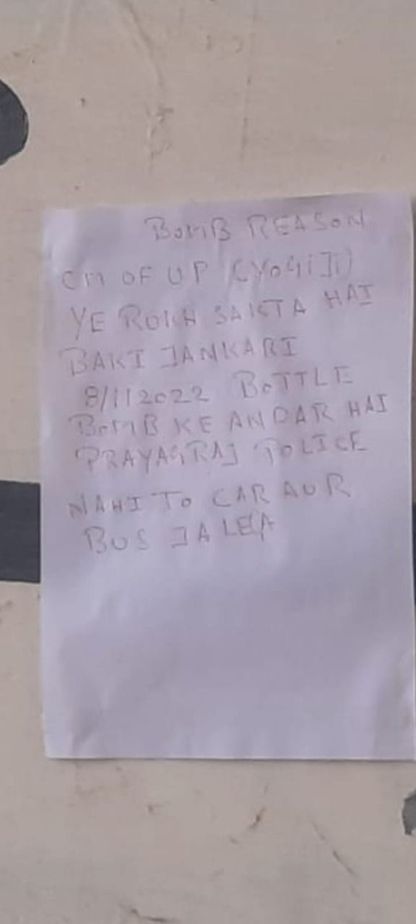 BOMB REASON
CM OF UP (YOGi Ji)
YE ROKH SAKTA HAI
BAKI JANKARI
8/112022 BOTTLE
BOMB KE ANDAR HAI
PRAYAGRAJ POLICE
NAHI TO CAR AUR
BUS JALEGA